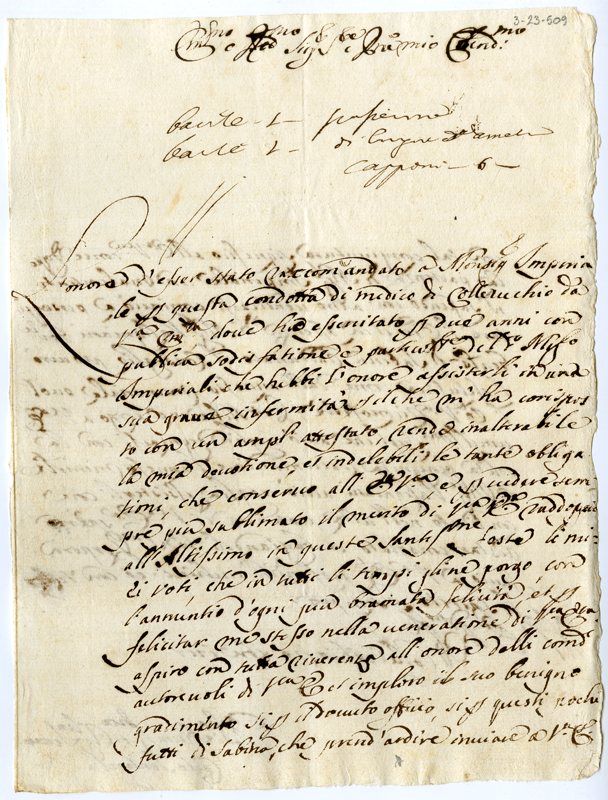 3-23-509
Em.mo e R.mo Sig.re e P.ron mio Col.mo
di
Capponi 6
L'onore d'esser stato raccomandato à Monsig.r Imperia
le p questa condotta di medico di Collevechio dà
V.ra Em.za dove hò essercitato p due anni con
publica sodisfatione e
Imperiali, che hebbi l'onore assisterli in una
sua grave infermità, si che m'ha corispos
to con un ampl. attestato, rende inalterabile
la mia devotione, et indelebili le tante obliga
tioni, che conservo all' Em. V.ra e p vedere sem
pre più sublimato il merito di V.ra Em.za raddoppio
all'Altissimo in queste Santissime feste li mi
ei voti, che in tutti li tempi gline porgo, con
l'annuntio d'ogni più bramata felicità, et p
felicitar me stesso nella veneratione di V.ra Em.za
aspiro con tutta riverenza all'onore delli comd.
autorevoli di V.ra E et imploro il suo benigno
gradimento si p il devuto offitio si p questi pochi
frutti di Sabina, che prend'ardire inviare a V.ra E